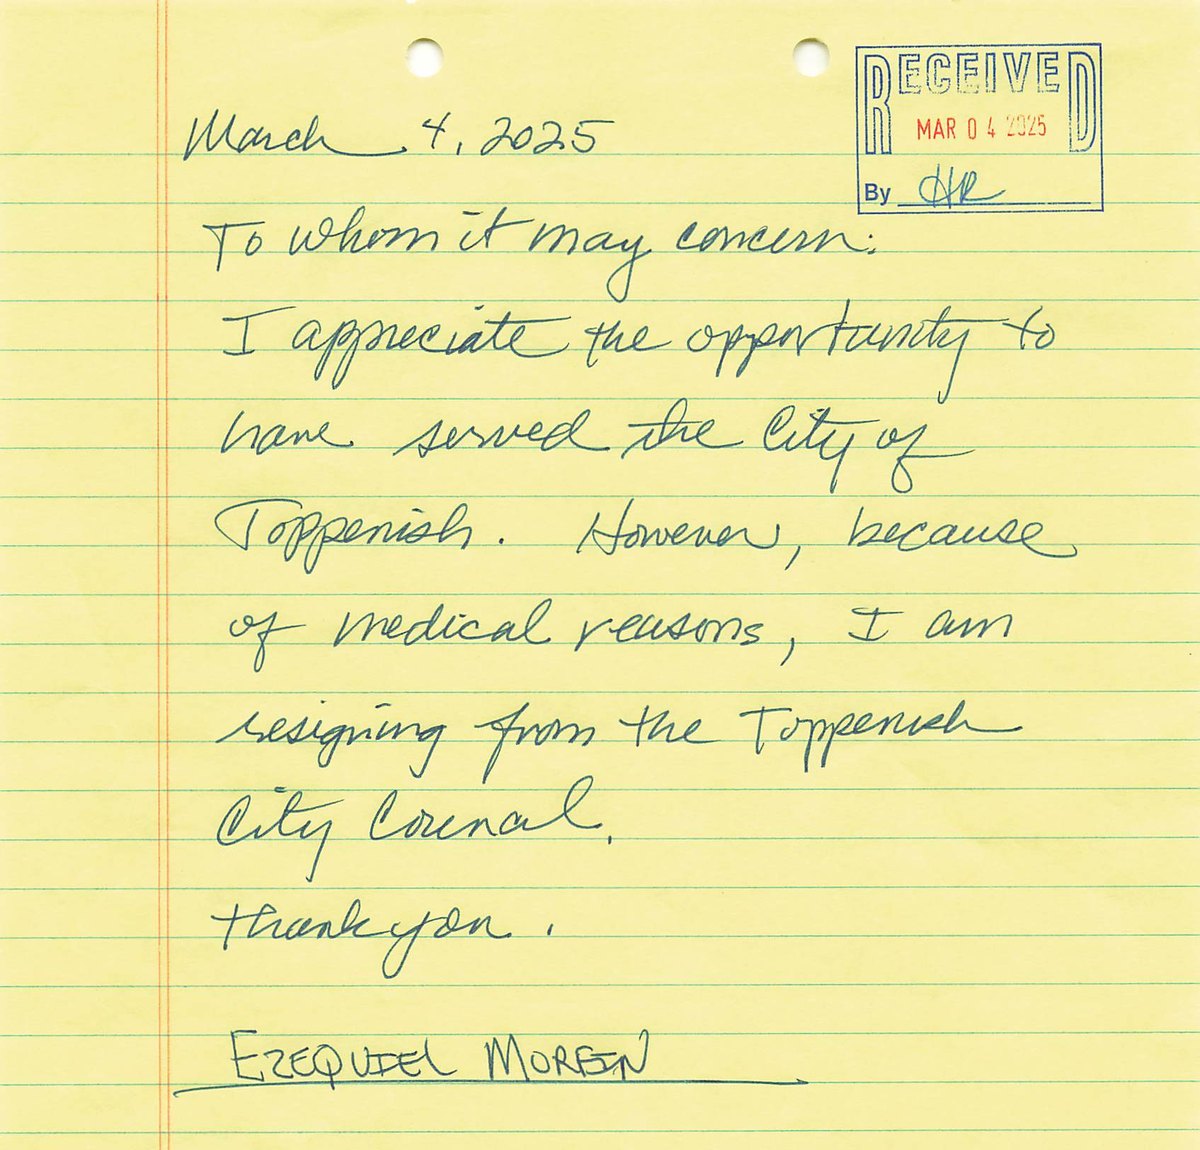 RECEIVED
MAR 04 2025
By HR
March 4, 2025
To whom it may concern:
I appreciate the opportunity to
have served the City of
Toppenish. However, because
of medical reasons, I am
resigning from the Toppenish
City Council.
Thank you.
EZEQUIEL MORFIN